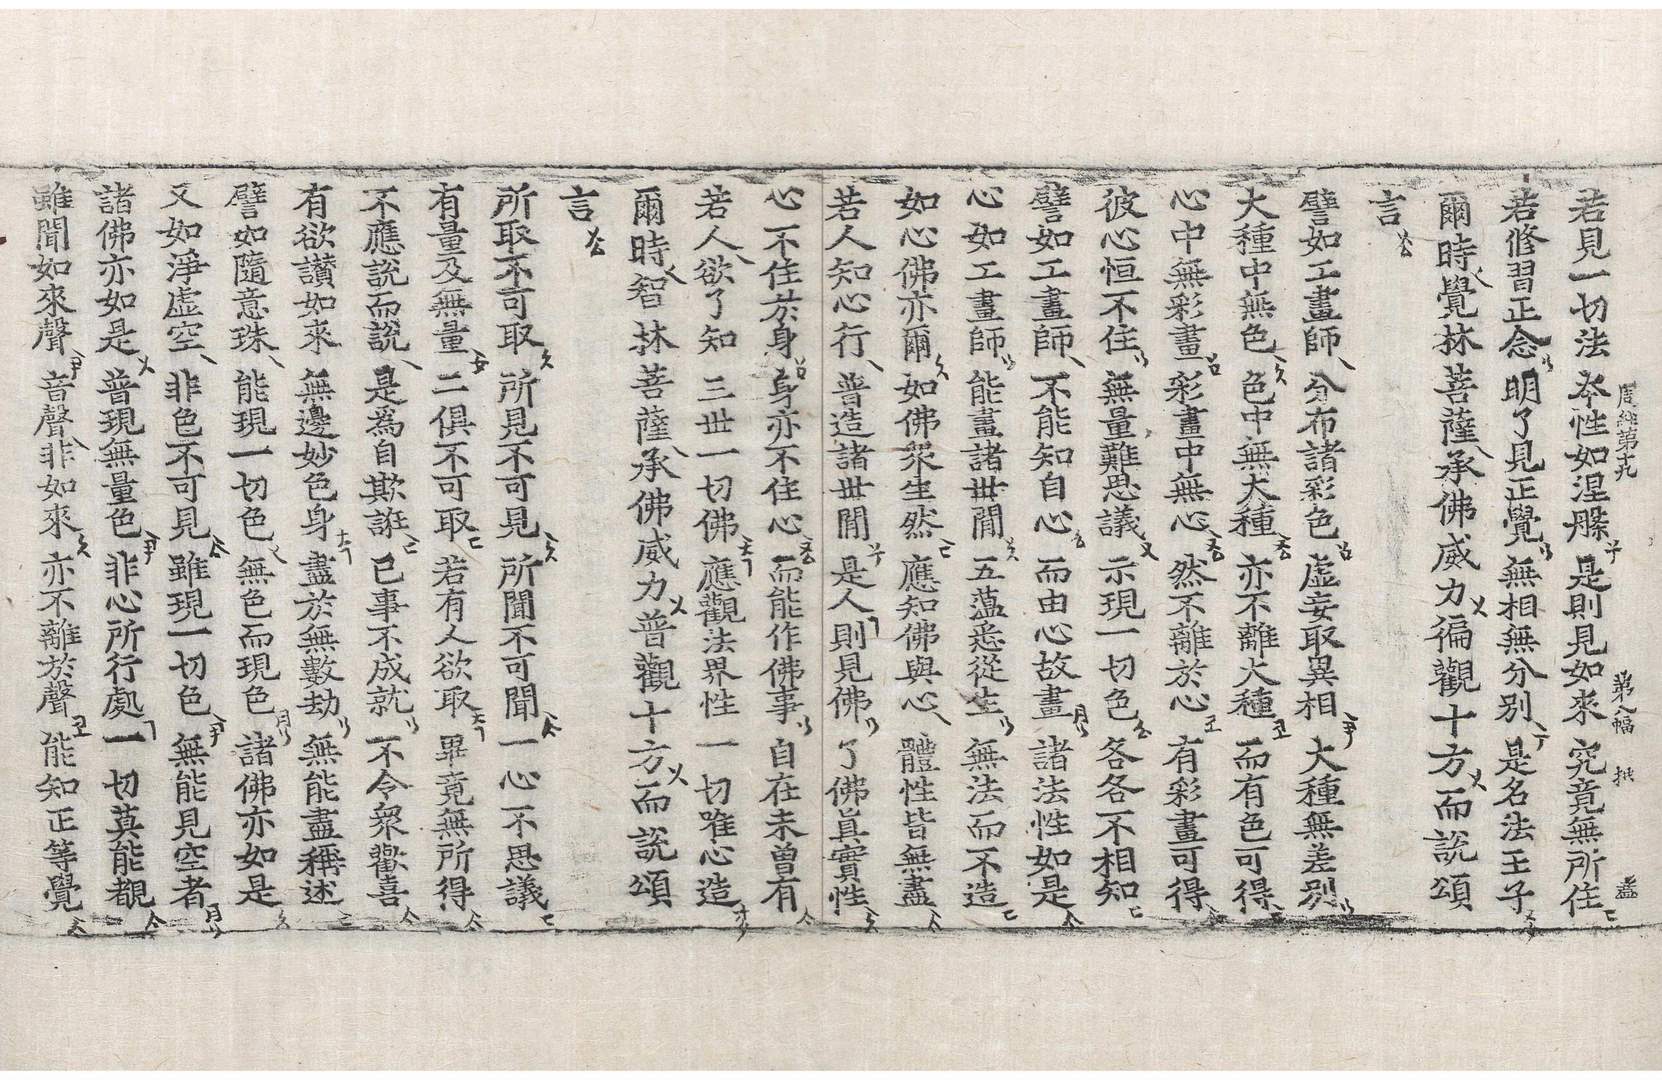 若見一切法 夲性如涅槃 是則見如來 究竟無所住
周經第十九 第八幅
若修習正念 明了見正覺 無相無分別 是名法王子
爾時覺林菩薩承佛威力徧觀十方而說頌
言
譬如工畫師 分布諸彩色 虛妄取異相 大種無差別
大種中無色 色中無大種 亦不離大種 而有色可得
心中無彩畫 彩畫中無心 然不離於心 有彩畫可得
彼心恒不住 無量難思議 示現一切色 各各不相知
譬如工畫師 不能知自心 而由心故畫 諸法性如是
心如工畫師 能畫諸世間 五蘊悉從生 無法而不造
如心佛亦爾 如佛衆生然 應知佛與心 體性皆無盡
若人知心行 普造諸世間 是人則見佛 了佛眞實性
心不住於身 身亦不住心 而能作佛事 自在未曾有
若人欲了知 三世一切佛 應觀法界性 一切唯心造
爾時智林菩薩承佛威力普觀十方而說頌
言
所取不可取 所見不可見 所聞不可聞 一心不思議
有量及無量 二俱不可取 若有人欲取 畢竟無所得
不應說而說 是爲自欺誑 已事不成就 不令衆歡喜
有欲讃如來 無邊妙色身 盡於無數劫 無能盡稱述
譬如隨意珠 能現一切色 無色而現色 諸佛亦如是
又如淨虛空 非色不可見 雖現一切色 無能見空者
諸佛亦如是 普現無量色 非心所行處 一切莫能覩
雖聞如來聲 音聲非如來 亦不離於聲 能知正等覺